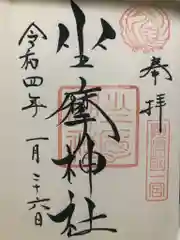 奉拝
坐摩神社
令和四年一月二十六日